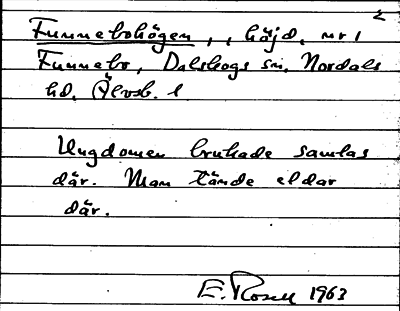 2
Funnebohögen, , höjd, nr 1
Funnebo, Dalskogs sn, Nordals
hd, Älvsb. l
Ungdomen brukade samlas
där. Man tände eldar
där.
E. Rosell 1963